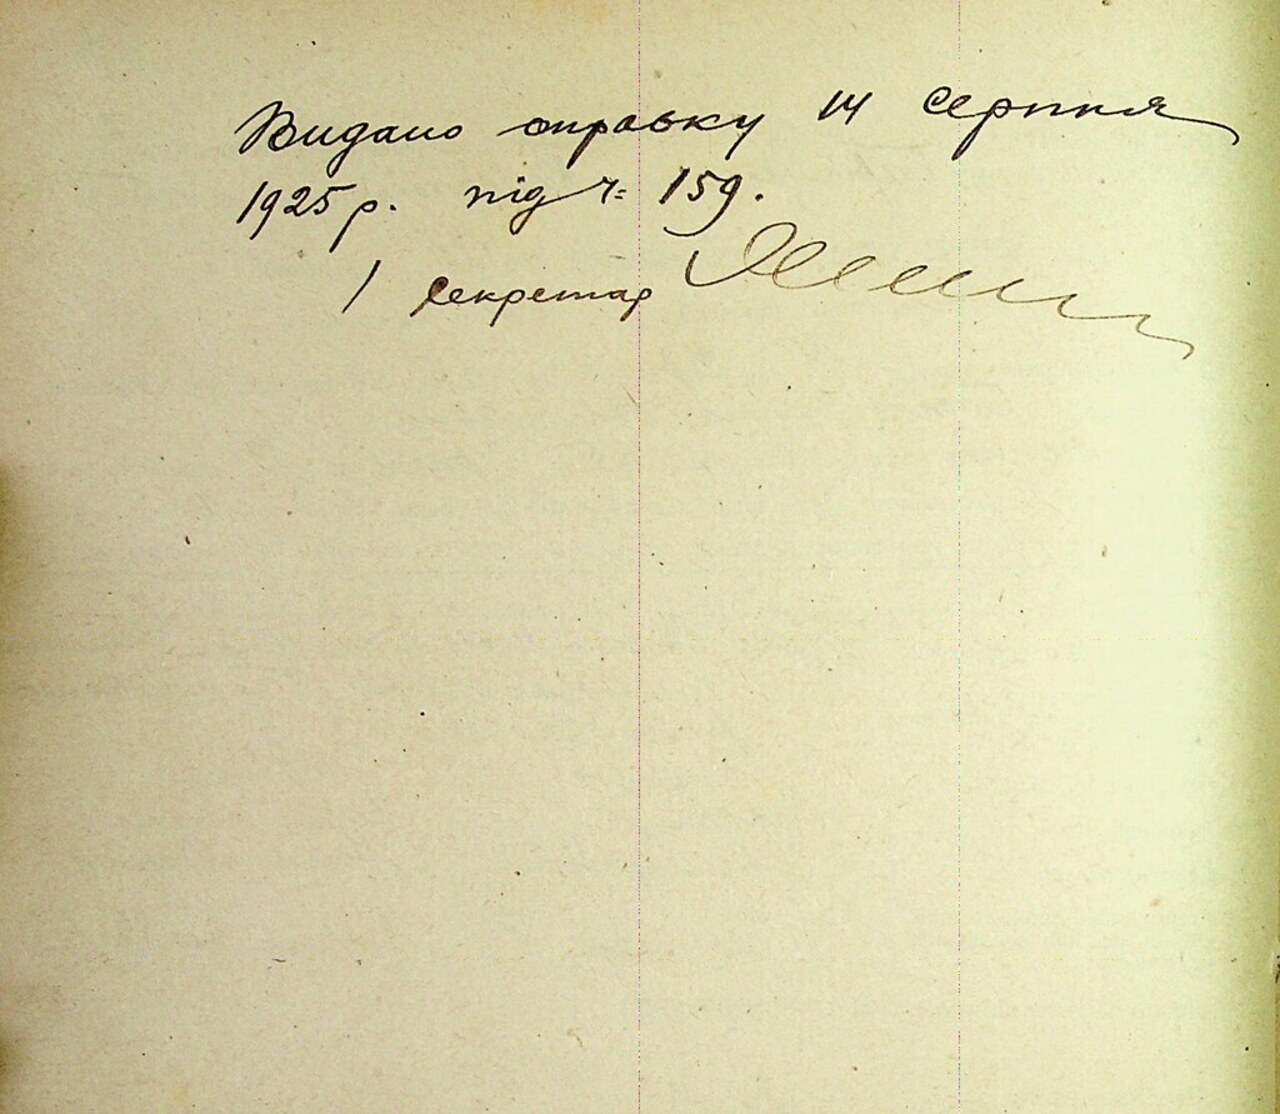 Видано справку 14 серпня
1925 р. під ч: 159.
/ Секретар